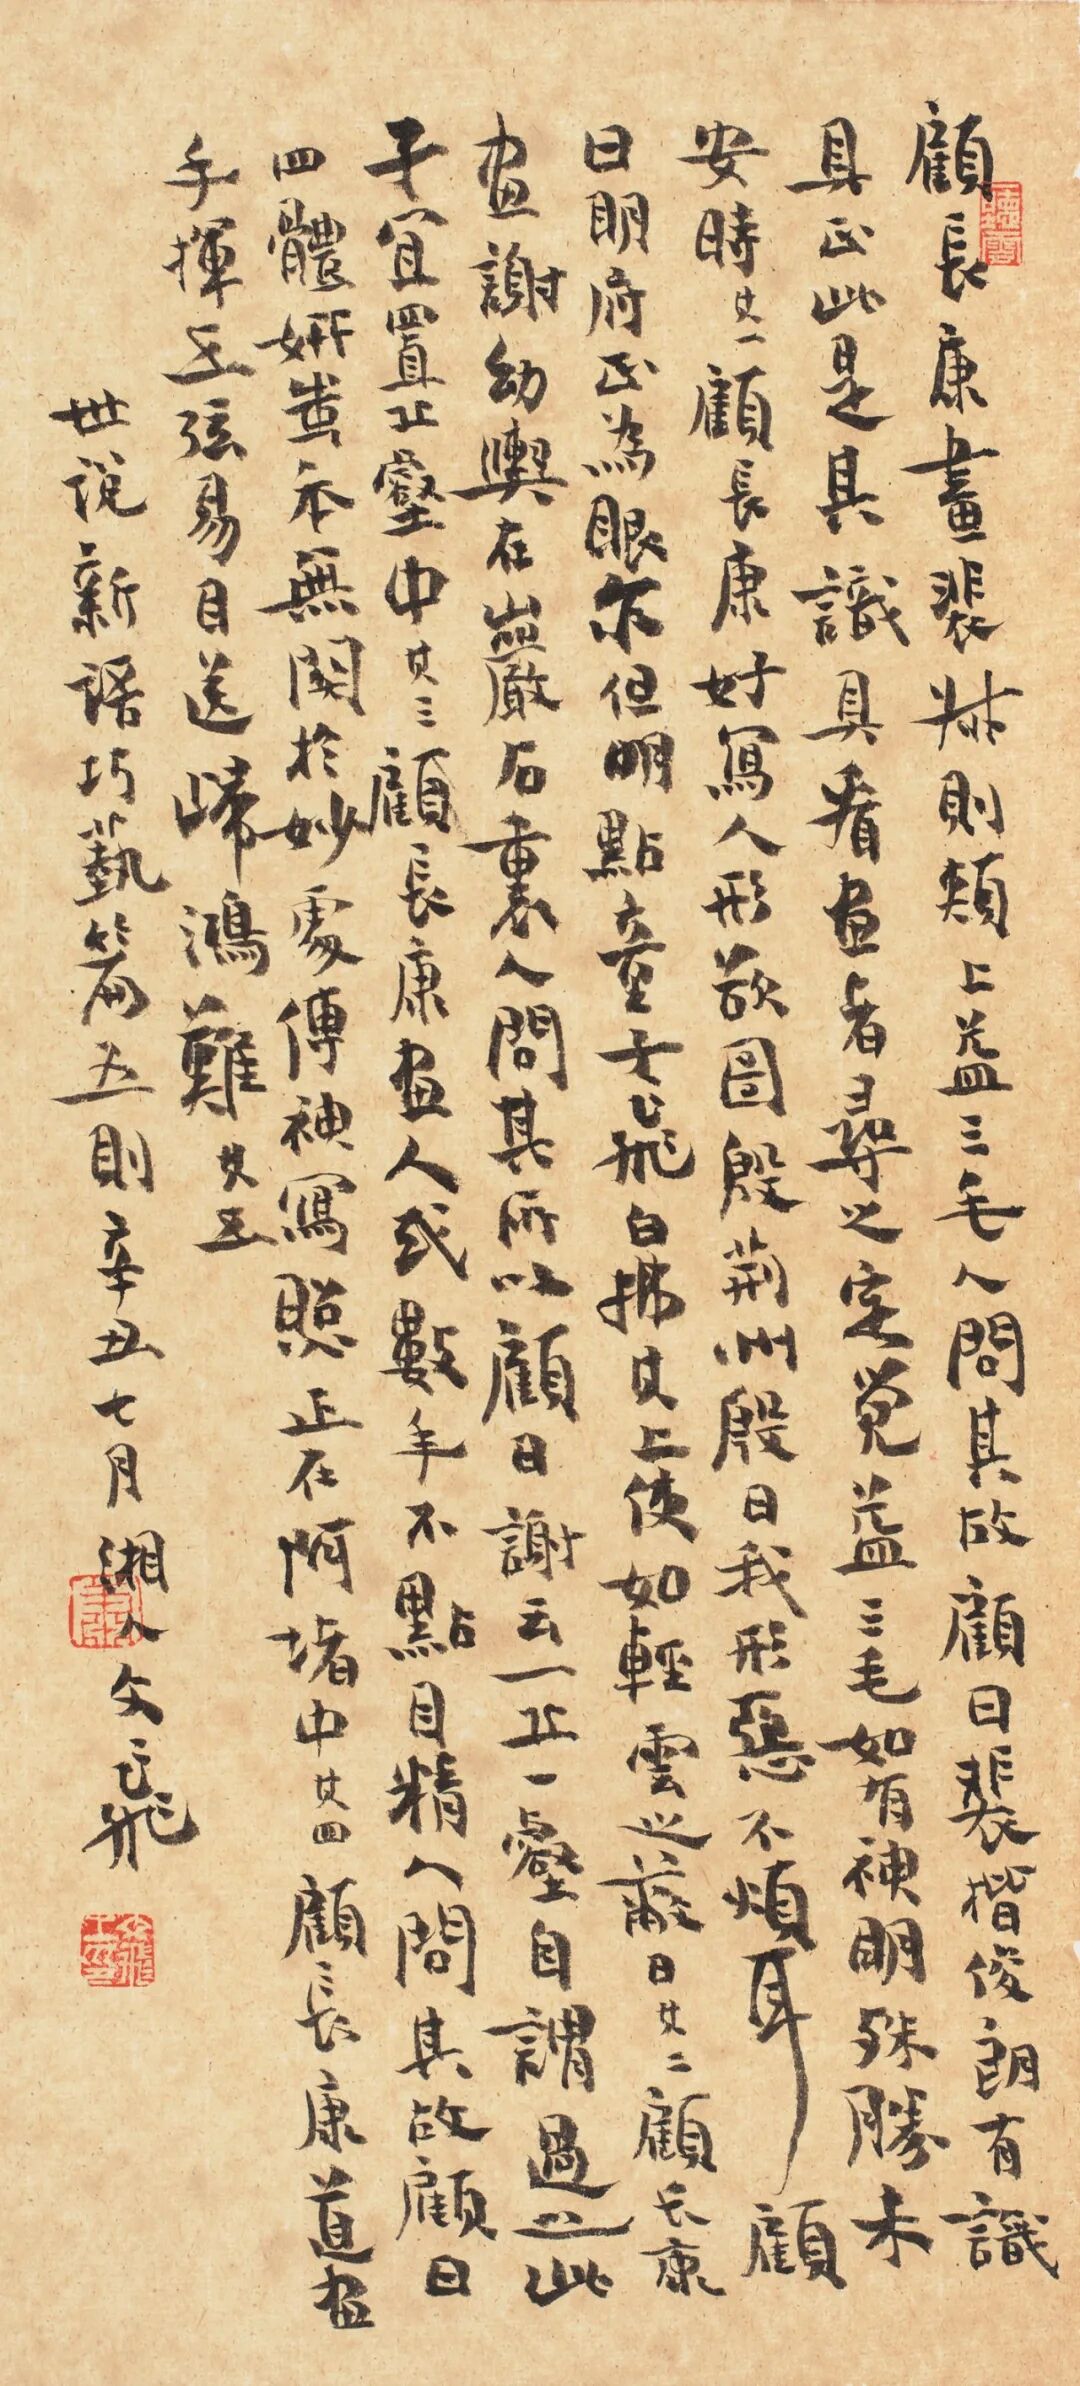 顧長康畫裴叔則頰上益三毛人問其故顧曰裴楷俊朗有識
具正此是其識具看画者尋之定覺益三毛如有神明殊勝未
安時廿一顧長康好寫人形欲圖殷荊州殷曰我形惡不煩耳顧
曰明府正為眼尔但明點童子飛白拂其上使如輕雲之蔽日廿二顧長康
画謝幼輿在巖石裏人問其所以顧曰謝云一丘一壑自謂過之此
子宜置丘壑中廿三顧長康画人或數年不點目精人問其故顧曰
四體妍蚩本無關於妙處傳神寫照正在阿堵中廿四顧長康道画
手揮五弦易目送歸鴻難廿五
世說新語巧藝篇五則辛丑七月湘人文飛